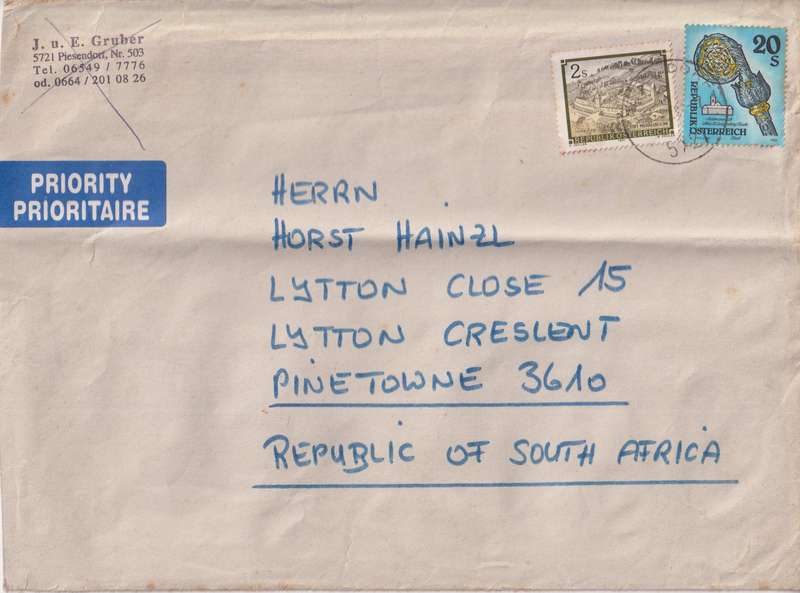 J. u. E. Gruber
5721 Piesendorf, Nr. 503
Tel. 06549 / 7776
od. 0664 / 201 08 26
2s
REPUBLIK ÖSTERREICH
20 S
REPUBLIK
ÖSTERREICH
PRIORITY
PRIORITAIRE
HERRN
HORST HAINZL
LYTTON CLOSE 15
LYTTON CRESLENT
PINETOWNE 3610
REPUBLIC OF SOUTH AFRICA